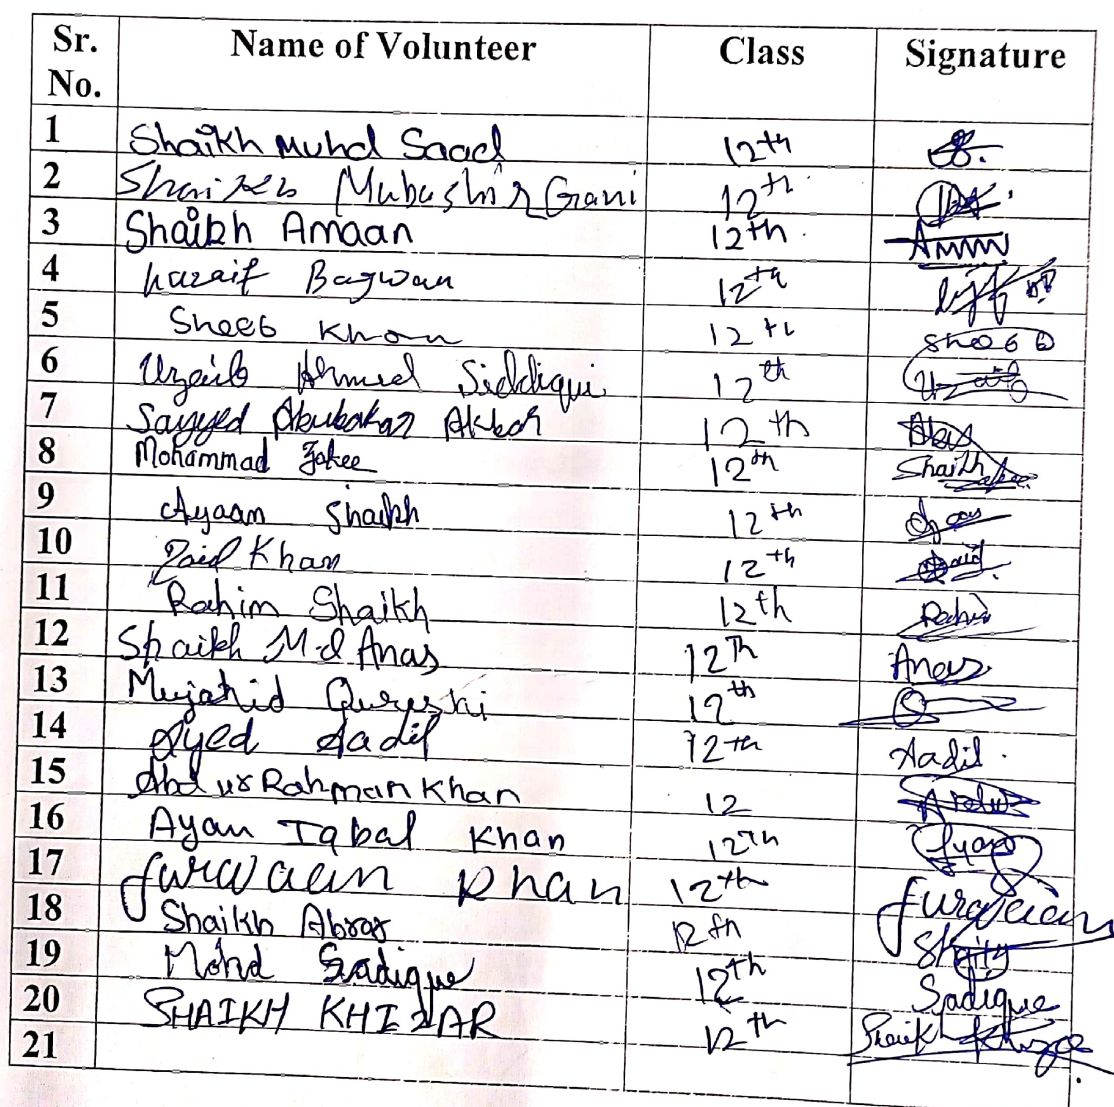 Sr. No. Name of Volunteer Class Signature
1 Shaikh Muhd Saad 12th
2 Shaikh Mubashir Gani 12th
3 Shaikh Amaan 12th Aman
4 huzaif Bagwan 12th
5 Shoeb Khan 12th Shoeb
6 Uzaib Ahmed Siddiqui 12th Uzaib
7 Sayyed Abubakar Akbar 12th
8 Mohammad Zakee 12th Shaikh
9 Ayaan Shaikh 12th
10 Zaid Khan 12th Zaid
11 Rahim Shaikh 12th Rahim
12 Shaikh Md Anas 12Th Anas
13 Mujahid Qureshi 12th
14 Syed Aadil 12th Aadil.
15 Abd ur Rahman Khan 12
16 Ayan Iqbal Khan 12Th Ayan
17 furwaein Khan 12th furwaein
18 Shaikh Abrar 12th
19 Mohd Sadique 12th Sadique
20 SHAIKH KHIZAR 12th Shaikh Khizar
21